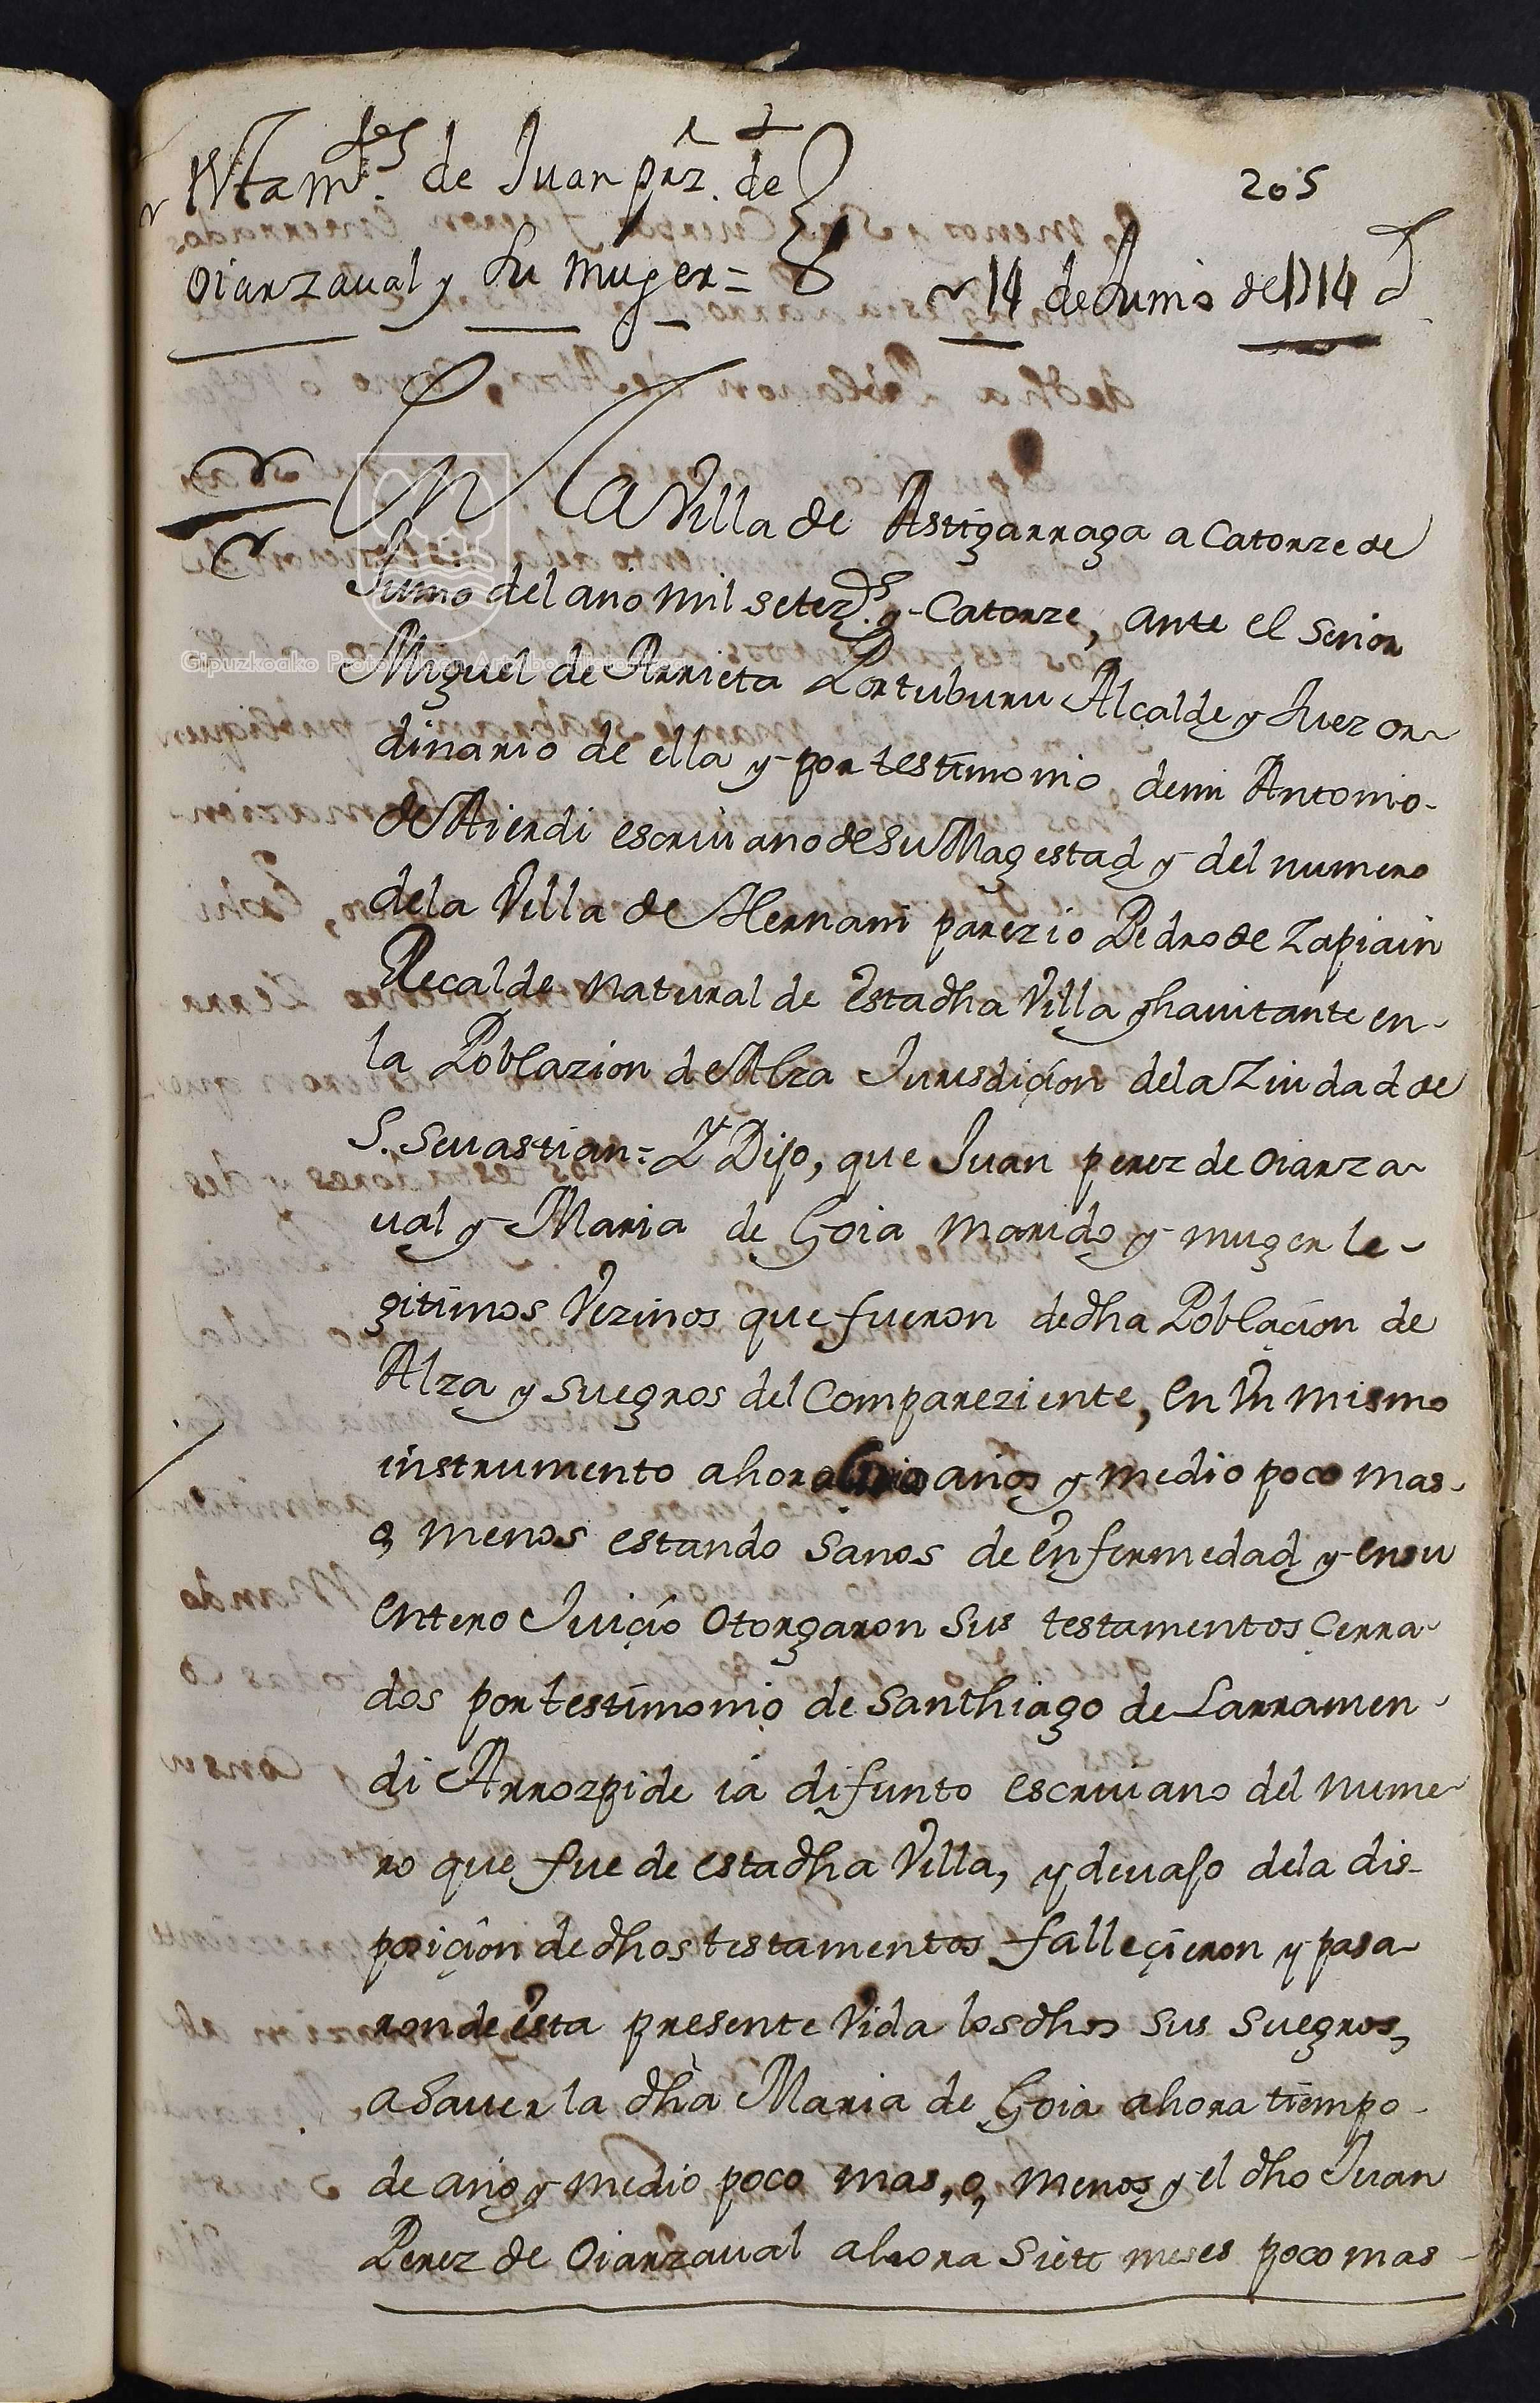 205
tes
Ntam.tos de Juan prz. de
oiarzaval y su muger =
14 de Junio de 1714
En la Villa de Astigarraga a catorze de
Junio del año mil setez.s y catorze, ante el señor
Miguel de Arrieta Portuburu Alcalde y Juez or-
dinario de ella y por testimonio demi Antonio
de Aierdi escriuano de Su Magestad y del numero
dela Villa de Hernani parezio Pedro de Zapiain
Recalde natural de Esta dha Villa y hauitante en
la Poblazion de Alza Jurisdiçion dela Ziudad de
S. Seuastian = Y Dijo, que Juan perez de oiarza-
ual y Maria de Goia marido y muger le-
gitimos Vezinos que fueron de dha Poblaçion de
Alza y suegros del Compareziente, en Vn mismo
instrumento ahora años y medio poco mas
o, menos estando sanos de enfermedad y en su
entero Juiçio otorgaron sus testamentos çerra-
dos por testimonio de Santhiago de Larramen-
di Arrozpide ia difunto escriuano del nume-
ro que fue de esta dha Villa, y deuajo dela dis-
posiçion de dhos testamentos falleçieron y pasa-
ron de esta presente Vida los dhos sus suegros,
a sauer la dha Maria de Goia ahora tiempo
de año y medio poco mas, o, menos y el dho Juan
Perez de oiarzaual ahora siete meses poco mas
Gipuzkoako Protokoloen Artxibo Historikoa